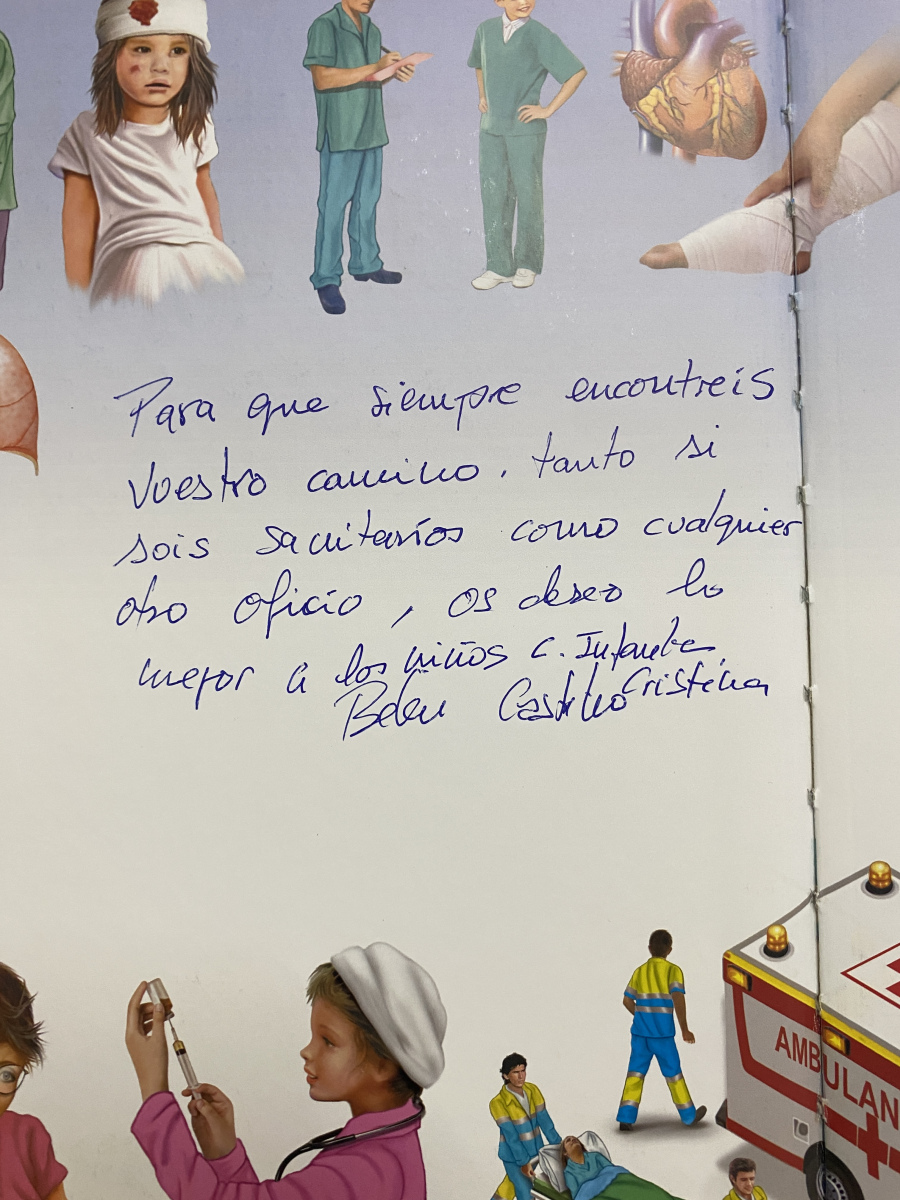 Para que siempre encontreis
vuestro camino, tanto si
sois sanitarios como cualquier
otro oficio, os deseo lo
mejor a los niños C. Infanta
Cristina
Belén Castillo
AMBULAN